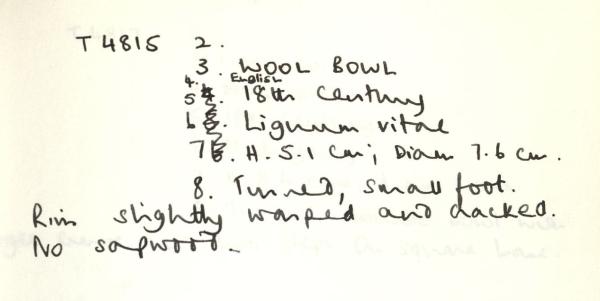 T4815 2.
3. WOOL BOWL
4. English
5. 18th Century
6. Lignum vitae
7. H. 5.1 cm; Diam 7.6 cm.
8. Turned, small foot.
Rim slightly warped and cracked.
No sapwood.